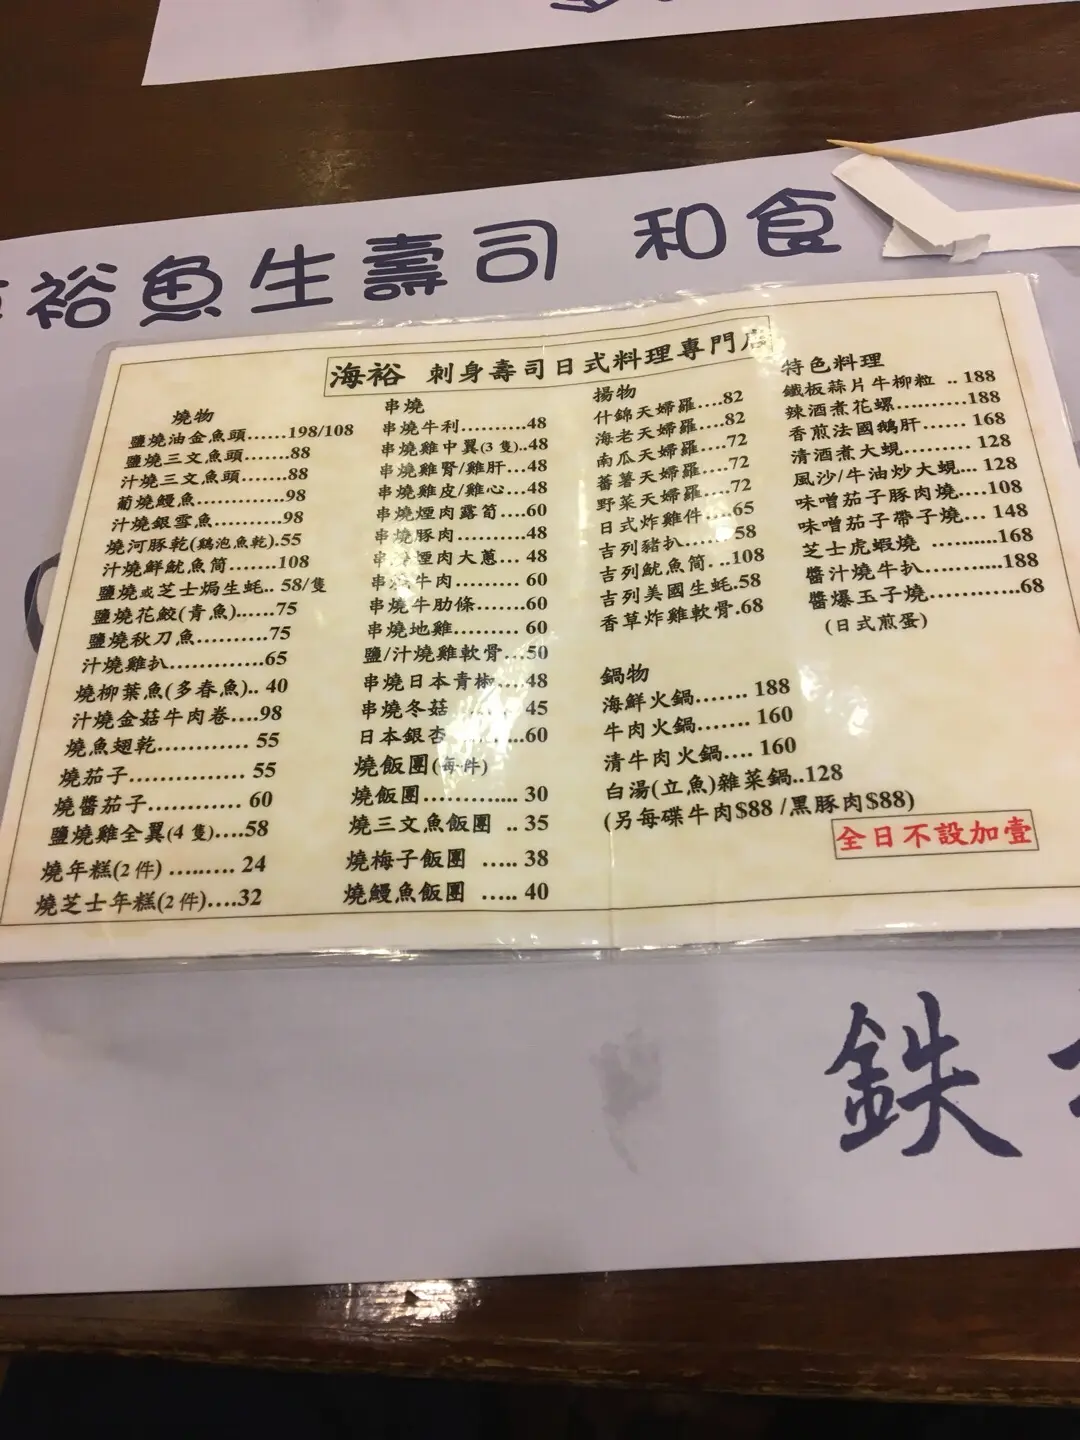 裕魚生壽司 和食
海裕 刺身壽司日式料理專門店
燒物
鹽燒油金魚頭......198/108
鹽燒三文魚頭.......88
汁燒三文魚頭.......88
葡燒鰻魚...........98
汁燒銀雪魚..........98
燒河豚乾(鷄泡魚乾).55
汁燒鮮魷魚筒.......108
鹽燒或芝士焗生蚝.. 58/隻
鹽燒花鮫(青魚)......75
鹽燒秋刀魚..........75
汁燒雞扒.............65
燒柳葉魚(多春魚).. 40
汁燒金菇牛肉卷....98
燒魚翅乾............ 55
燒茄子................ 55
燒醬茄子............ 60
鹽燒雞全翼(4 隻)....58
燒年糕(2 件) ......... 24
燒芝士年糕(2 件)....32
串燒
串燒牛利..........48
串燒雞中翼(3 隻)..48
串燒雞腎/雞肝...48
串燒雞皮/雞心...48
串燒煙肉露筍....60
串燒豚肉..........48
串燒煙肉大蔥... 48
串燒牛肉......... 60
串燒牛肋條.......60
串燒地雞......... 60
鹽/汁燒雞軟骨...50
串燒日本青椒....48
串燒冬菇 45
日本銀杏 ...60
燒飯團(每件)
燒飯團............. 30
燒三文魚飯團 .. 35
燒梅子飯團 ..... 38
燒鰻魚飯團 ..... 40
揚物
什錦天婦羅....82
海老天婦羅....82
南瓜天婦羅....72
蕃薯天婦羅....72
野菜天婦羅....72
日式炸雞件....65
吉列豬扒.......58
吉列魷魚筒. ..108
吉列美國生蚝.58
香草炸雞軟骨.68
鍋物
海鮮火鍋....... 188
牛肉火鍋....... 160
清牛肉火鍋.... 160
白湯(立魚)雜菜鍋..128
(另每碟牛肉$88 /黑豚肉$88)
特色料理
鐵板蒜片牛柳粒 .. 188
辣酒煮花螺..........188
香煎法國鵝肝...... 168
清酒煮大蜆......... 128
風沙/牛油炒大蜆... 128
味噌茄子豚肉燒....108
味噌茄子帶子燒... 148
芝士虎蝦燒 .........168
醬汁燒牛扒..........188
醬爆玉子燒............68
(日式煎蛋)
全日不設加壹
鉄